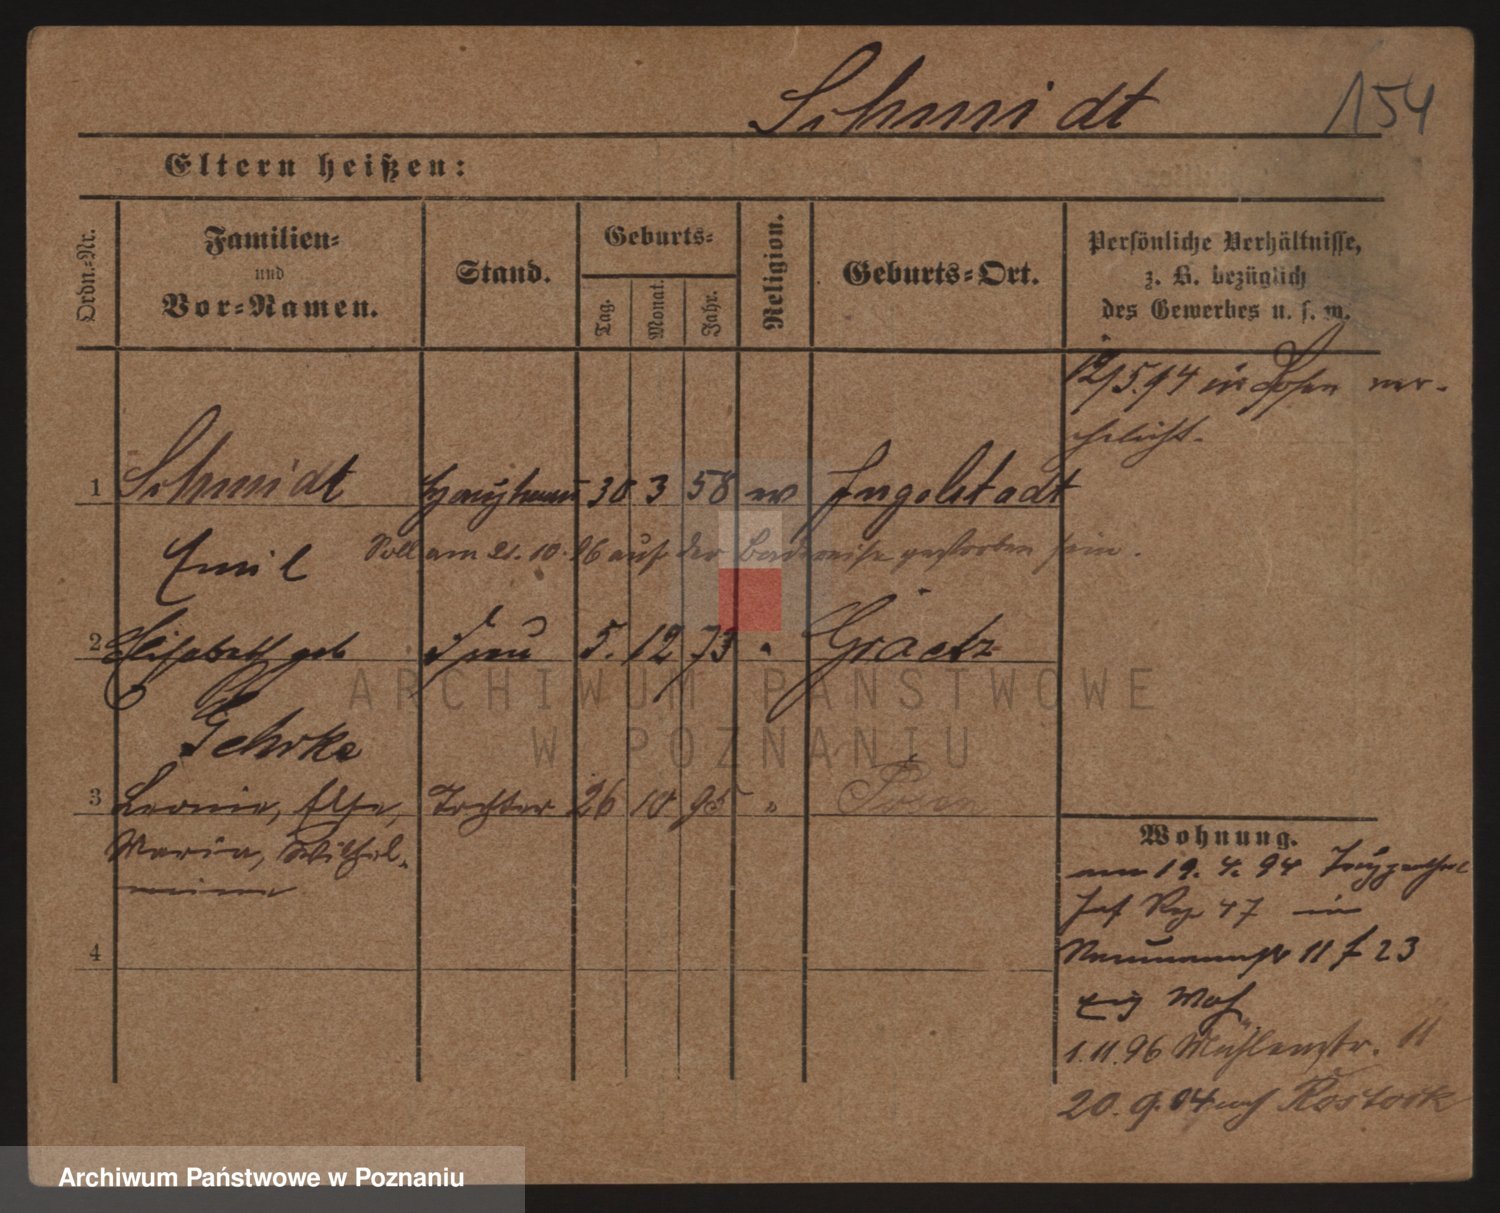 Schmidt 154
Eltern heißen:
Ordn.-Nr.
Familien-
und
Vor-Namen.
Stand.
Geburts-
Tag.
Monat.
Jahr.
Religion.
Geburts-Ort.
Persönliche Verhältnisse,
z. B. bezüglich
des Gewerbes u. s. w.
12/5.94 in Posen ver-
ehelicht.
1 Schmidt Hauptmann 30 3 58 ev Ingolstadt
Emil Soll am 21.10.96 auf der Badereise gestorben sein.
2 Elisabeth geb Frau 5. 12 73 " Graetz
Gehrke
3 Leonie, Else, Tochter 26 10 95 " Posen
Maria, Wilhel-
mine
4
Wohnung.
am 19.4.94
47 in
Naumannstr 11 f 23
Woh
1.11.96 Mühlenstr. 11
20.9.04 nach Rostock
ARCHIWUM PAŃSTWOWE
W POZNANIU
Archiwum Państwowe w Poznaniu